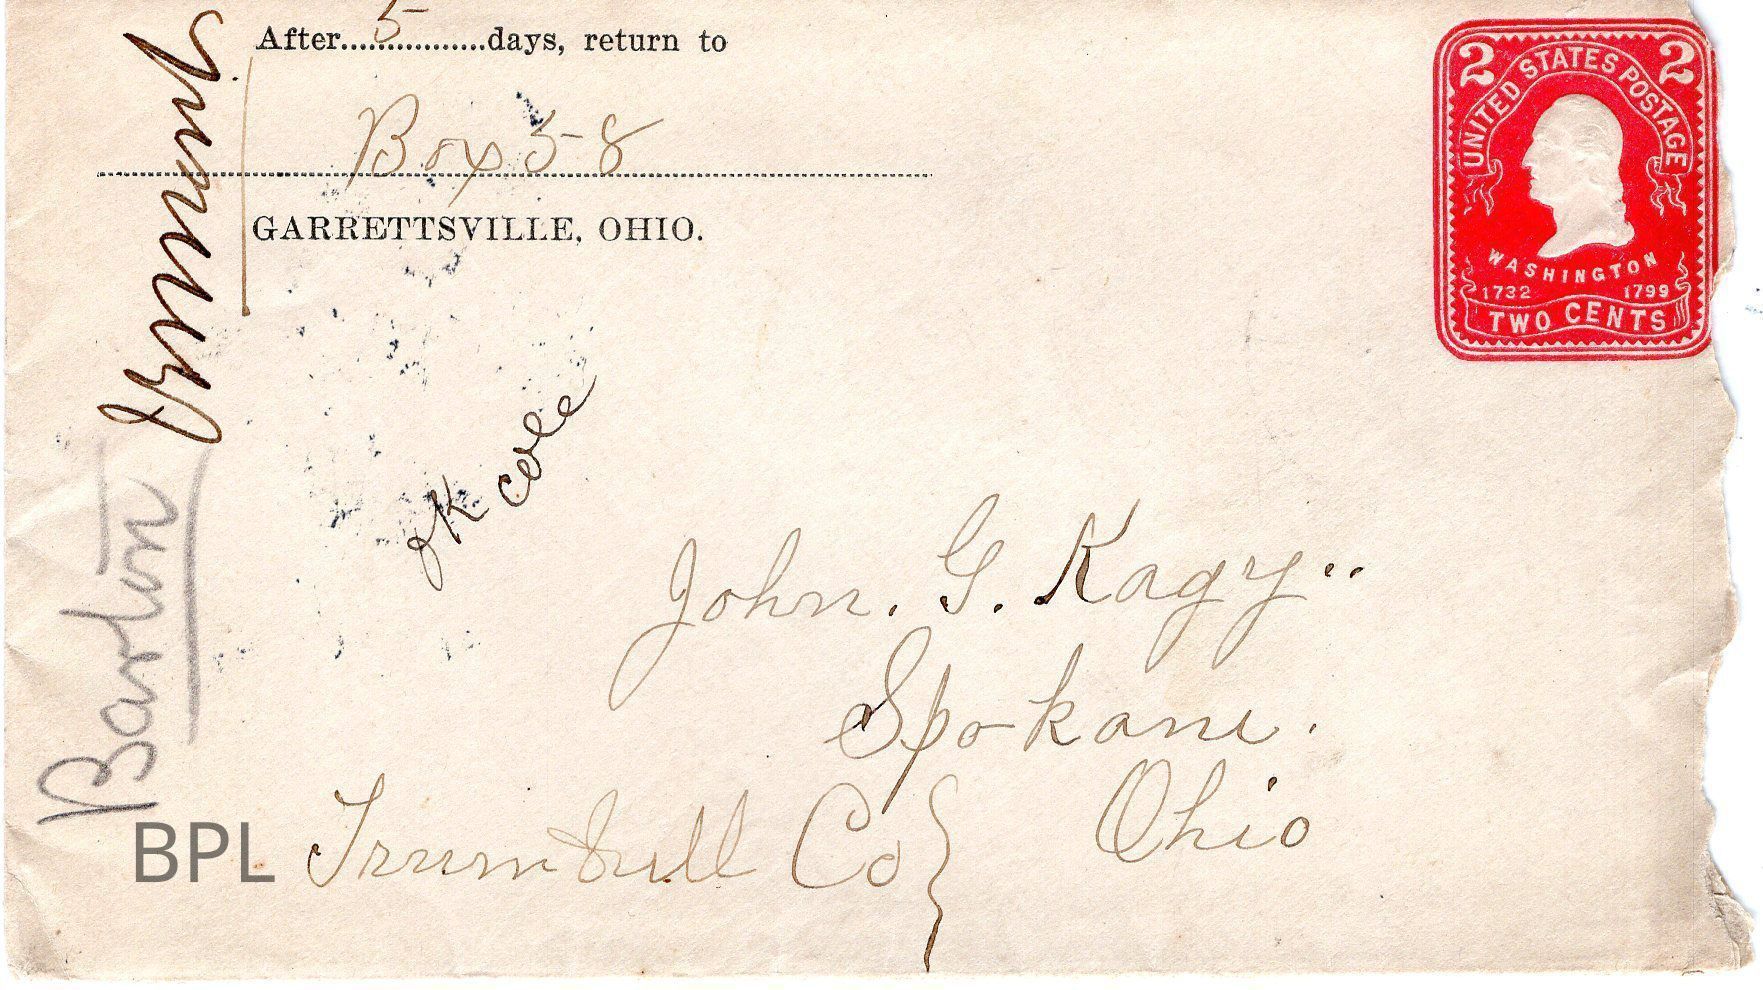 After....5....days, return to
Box 58
GARRETTSVILLE, OHIO.
2 2
UNITED STATES POSTAGE
WASHINGTON
1732 1799
TWO CENTS
Barton
ok
John. G. Kagy
Spokane.
Trumbull Co } Ohio
BPL